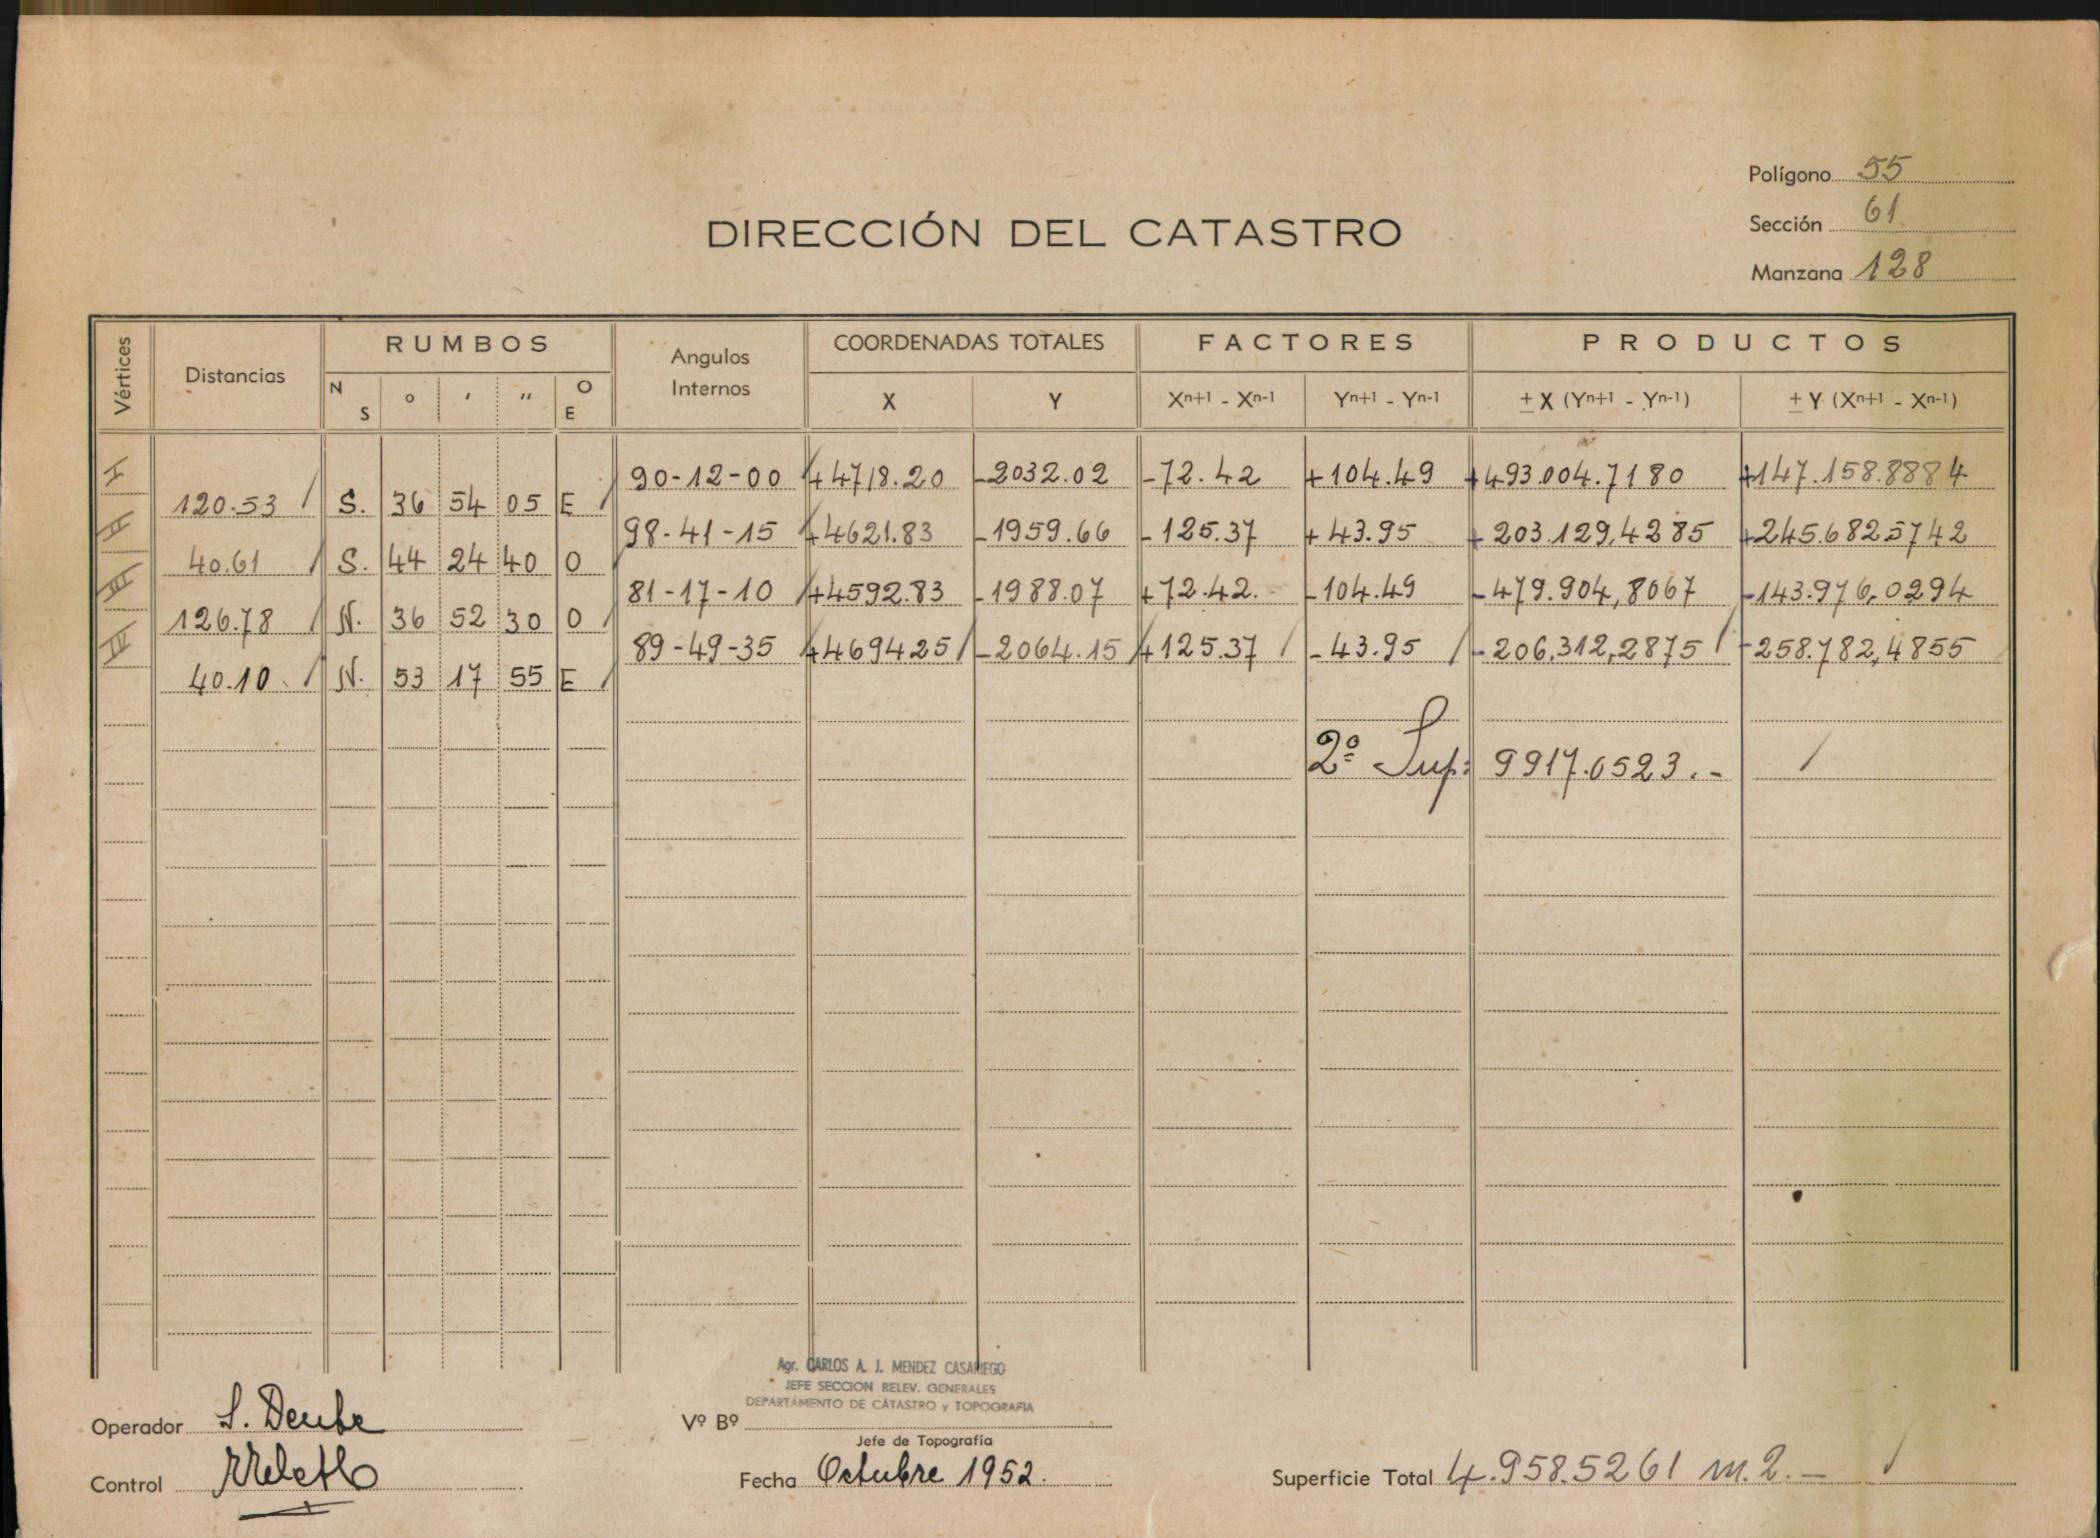 Polígono 55
Sección 61
Manzana 128
DIRECCIÓN DEL CATASTRO
Vértices Distancias RUMBOS Angulos Internos COORDENADAS TOTALES FACTORES PRODUCTOS
N S ° ' " O E X Y Xn+1 - Xn-1 Yn+1 - Yn-1 ± X (Yn+1 - Yn-1) ± Y (Xn+1 - Xn-1)
I 90-12-00 +4718.20 -2032.02 -72.42 +104.49 +493.004.7180 +147.158.8884
120.53 S. 36 54 05 E
II 98-41-15 +4621.83 -1959.66 -125.37 +43.95 +203.129,4285 +245.6825742
40.61 S. 44 24 40 O
III 81-17-10 +4592.83 -1988.07 +72.42. -104.49 -479.904,8067 -143.976,0294
126.78 N. 36 52 30 O
IV 89-49-35 +469425 -2064.15 +125.37 -43.95 -206.312,2875 -258.782,4855
40.10 N. 53 17 55 E
2º Sup: 9917.0523.-
Agr. CARLOS A. J. MENDEZ CASARIEGO
JEFE SECCION RELEV. GENERALES
DEPARTAMENTO DE CATASTRO y TOPOGRAFIA
Operador
Vº Bº
Jefe de Topografía
Control
Fecha Octubre 1952.
Superficie Total 4.958.5261 m.2.-